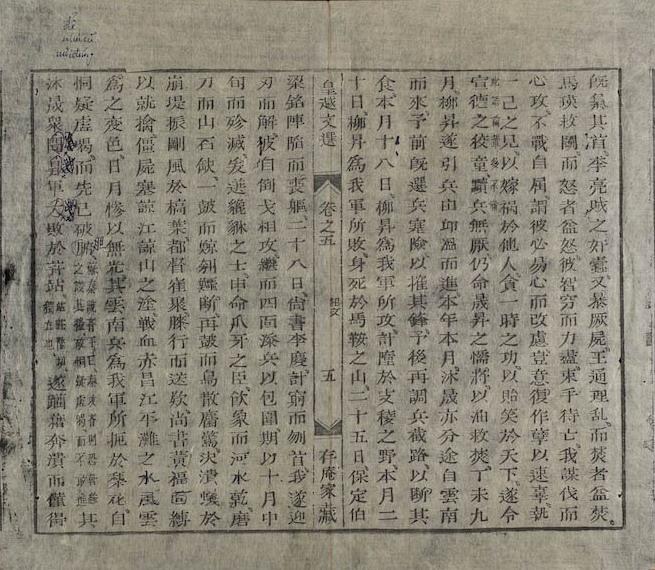 旣藁其首李亮賊之奸蠹又暴厥屍王通理亂而焚者益焚
馬瑛救鬪而怒者益怒彼智窮而力盡束手待亡我謀伐而
心攻不戰自屈謂彼必易心而改慮豈意復作孽以速辜執
一己之見以嫁禍於他人貪一時之功以貽笑於天下遂令
宣德之狡童黷兵無厭仍命晟昇之懦將以油救焚丁未九
月柳昇遂引兵由邱溫而進本年本月沐晟亦分途自雲南
而來予前旣選兵塞險以摧其鋒予後再調兵截路以斷其
食本月十八日柳昇爲我軍所攻計墮於支稜之野本月二
十日柳昇爲我軍所敗身死於馬鞍之山二十五日保定伯
皇越文選 卷之五 五 存庵家藏
梁銘陣陷而喪軀二十八日尚書李慶計窮而刎首我遂迎
刃而解彼自倒戈相攻繼而四面添兵以包圍期以十月中
旬而殄滅爰選貔貅之士申命爪牙之臣飲象而河水乾磨
刀而山石缺一鼓而鯨刳鱷斷再鼓而鳥散麕驚決潰蟻於
崩堤振剛風於槁葉都督崔聚膝行而送款尚書黃福面縛
以就擒僵屍塞諒江諒山之塗戰血赤昌江平灘之水風雲
爲之變色日月慘以無光其雲南兵爲我軍所扼於梨花自
恫疑虛喝而先已破膽其
沐晟衆聞昇軍大敗於芹站遂躪藉奔潰而僅得